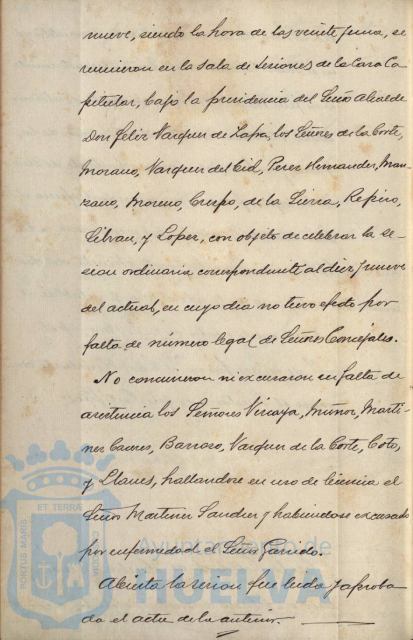 nueve, siendo la hora de las veinte y una, se
reunieron en la sala de sesiones de la Casa Ca-
pitular, bajo la presidencia del Señor Alcalde
Don Felix Vazquez de Zapa, los Señores de la Corte,
Morano, Vazquez del Cid, Perez Hernandez, Man-
zano, Moreno, Crespo, de la Sierra, Repiso,
y Lopez, con objeto de celebrar la se-
sion ordinaria correspondiente al diez y nueve
del actual, en cuyo dia no tuvo efecto por
falta de número legal de Señores Concejales.
No concurrieron ni excusaron su falta de
asistencia los Señores Vizcaya, Muñoz, Marti-
nez Barroso, Vazquez de la Corte, Coto,
y Llanes, hallandose en uso de licencia el
Señor Martinez Sanchez y habiendose excusado
por enfermedad el Señor Garrido.
Abierta la sesion fue leida y aproba-
da el acta de la anterior.
PORTUS MARIS
ET TERRÆ
Ayuntamiento de
HUELVA